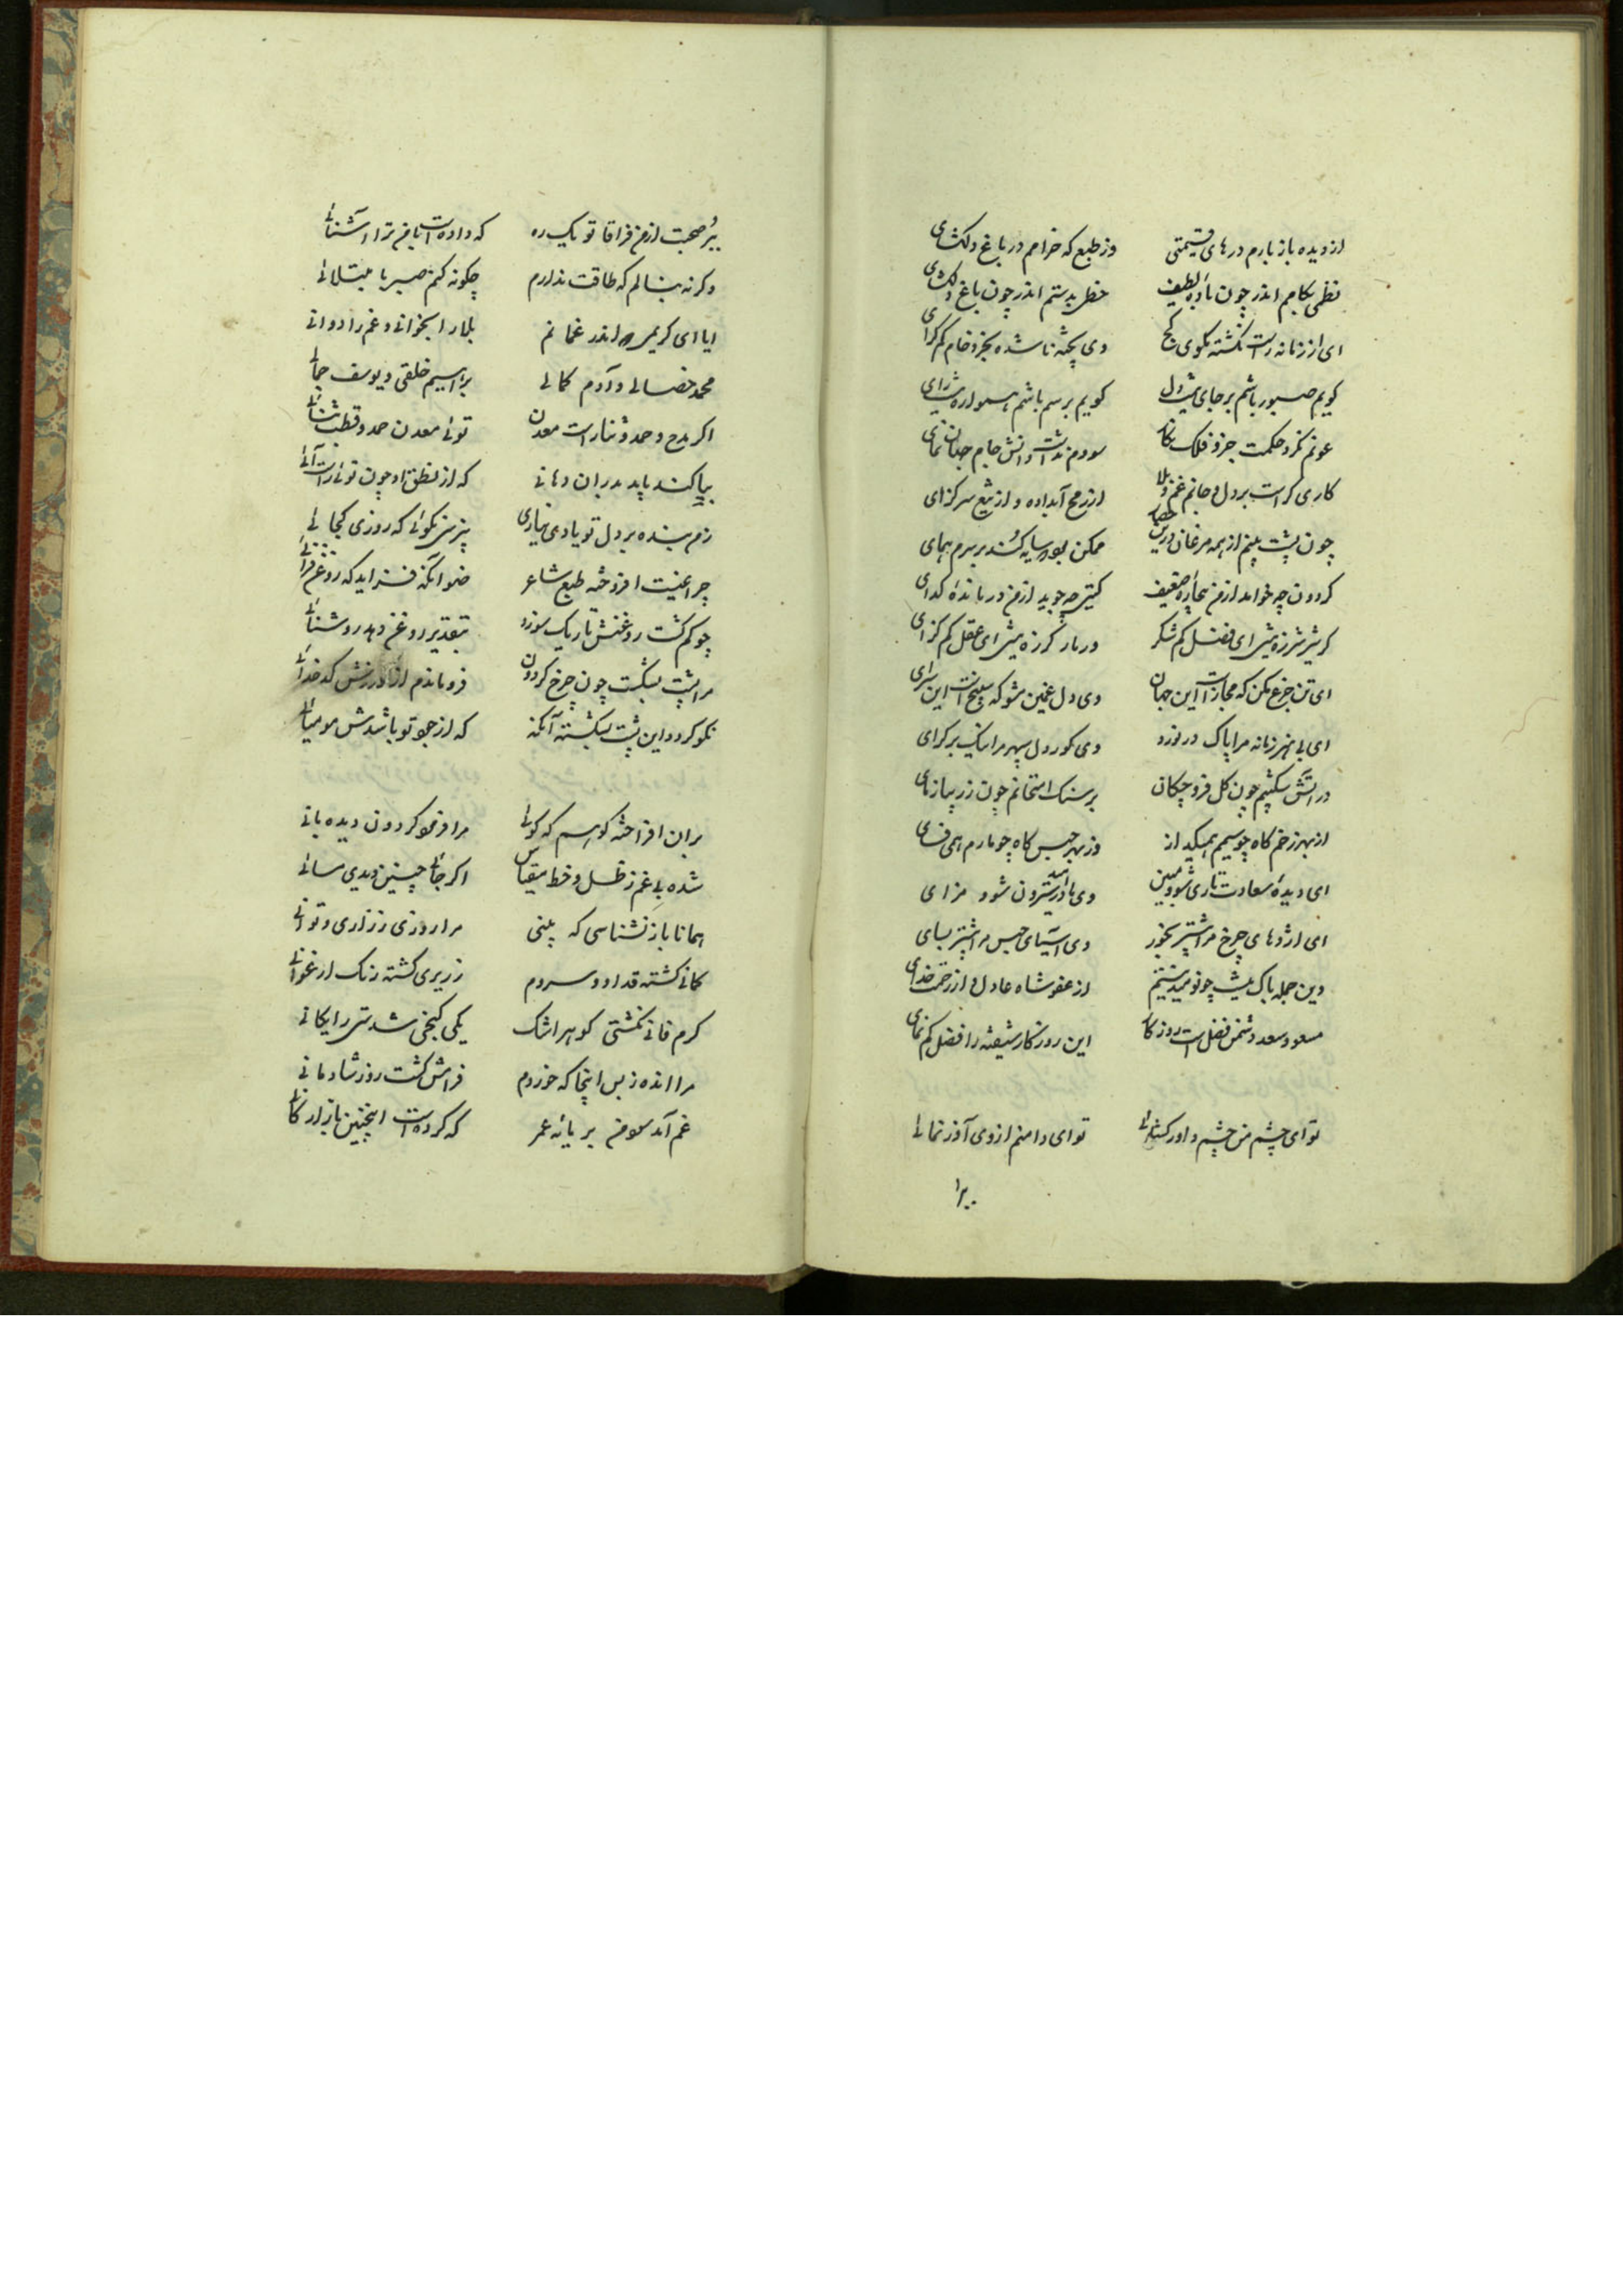 از دیده باز بارم درهای قیمتی وز طبع که خرامم در باغ دلکشای
نظمی بکامم اندر چون باده لطیف خطی بدستم اندر چون باغ دلکشای
ای از زمانه راست نکشته مکوی کج وی پخته ناشده بخرد خام کم درای
کویم صبور باشم بر جای دل کویم برسم باشم هموار
عونم نکرد حکمت جز و فلک نکار سودم نداشت دانش جام جهان نمای
کاری تر است بر دل و جانم غم و بلا از رمح آبداده و از تیغ سرکرای
چون پشت بینم از همه مرغان درین حصار ممکن بود که سایه کند بر سرم همای
کردون چه خواهد از من بیچاره ضعیف کیتی چه جوید از من درمانده کدای
کر شیر شرزه نیستی ای فضل کم شکر ور مار کرزه نیستی ای عقل کم کزای
ای تن جزع مکن که مجازیست این جهان وی دل غمین مشو که سپنجیست این سرای
ای بی هنر زمانه مرا پاک در نورد وی کور دل سپهر مرا نیک بر کرای
در آتش شکیبم چون کل فرو چکان بر سنک امتحانم چون زر بیازمای
از بهر زخم کاه چو سیمم همیکداز وز بهر حبس کاه چو مارم همی فسای
ای دیده سعادت تاری شو و مبین وی مادر امید سترون شو و مزای
ای اژدهای چرخ مرا بیشتر بخور وی آسیای حبس مرا بیشتر بسای
وین جمله باک نیست چو نومید نیستم از عفو شاه عادل و از رحمت خدای
مسعود سعد دشمن فضل است روزکار این روزکار شیفته را فضل کم نمای
تو ای چشم من چشم داور کشائی تو ای دامنم ازوی آذر نمائی
ببر صحبت از من فراقا تو یک ره که داده است با من ترا آشنائی
وکرنه بنالم که طاقت ندارم چکونه کنم صبر با مبتلائی
ایا ای کریمی که اندر غمانم بلا را بخوانی و غم را دوائی
محمد خصالی و آدم کمالی براهیم خلقی و یوسف جمالی
اکر مدح و حمد و ثنا راست معدن توئی معدن حمد و قطب ثنائی
بیاکند باید بدر آن دهانی که از لطق او چون توئی را
زمن بنده بر دل تو یادی نیاری نپرسی نکوئی که روزی کجائی
چراغیست افروخته طبع شاعر ضو آنکه فزاید که روغن فزائی
چو کم کشت روغنش تاریک سوزد بتقدیر روغن دهد روشنائی
مرا پشت بشکست چون چرخ کردون فرو ماندم از ورزش کدخدائی
نکو کردد این پشت بشکسته آنکه که از جود تو باشدش مومیائی
بر آن افراخته کوهم که کوئی مرا فرمود کردون دیده بانی
شده بی غم ز ظل و خط مقیاس اکر جائی چنین دیدی بسانی
همانا باز نشناسی که بینی مرا روزی ز زاری و توانی
کمانی کشته قد آرد و سروم زریری کشته رنک ارغوانی
کرم فانی نکشتی کوهر اشک یکی کنجی شدستی رایکانی
مرا انده ز بس اینجا که خوردم فرامش کشت روز شادمانی
غم آمد سود من بر مایه عمر که کرده است اینچنین بازارکانی